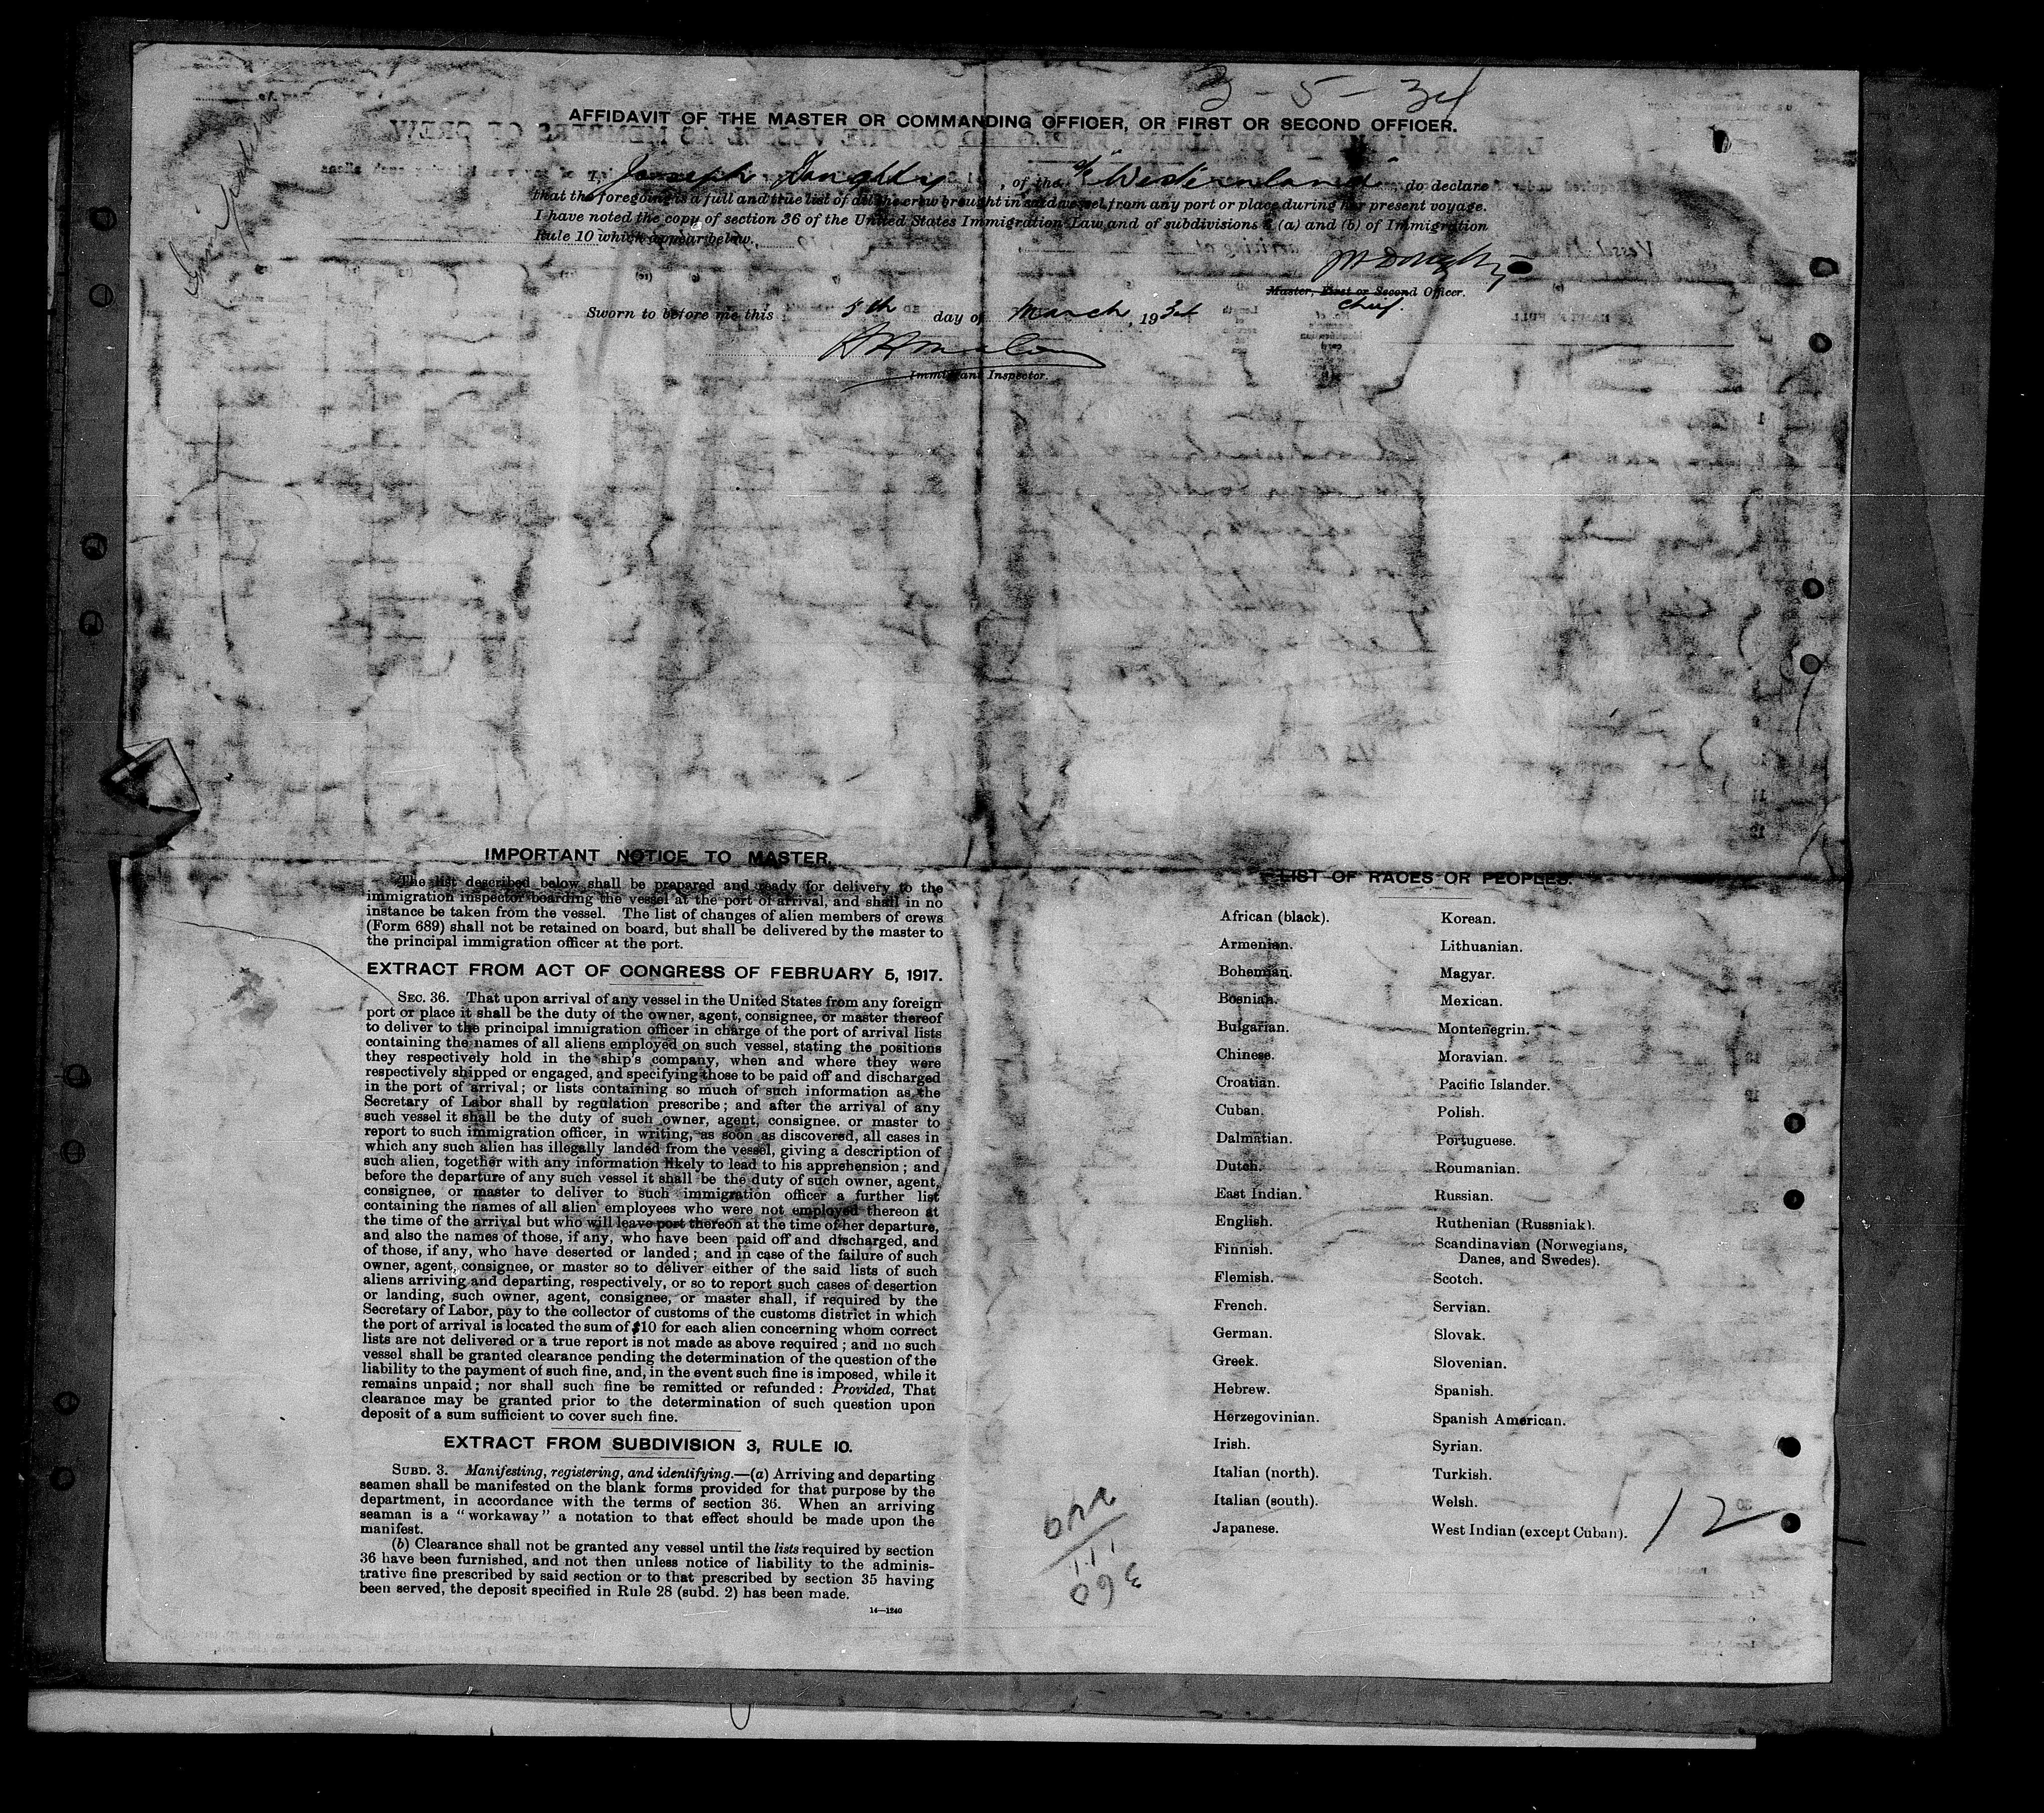 3-5-34
AFFIDAVIT OF THE MASTER OR COMMANDING OFFICER, OR FIRST OR SECOND OFFICER.
I, Joseph Doughty, of the "Westernland" do declare
that the foregoing is a full and true list of all the crew brought in said vessel from any port or place during her present voyage.
I have noted the copy of section 36 of the United States Immigration Law and of subdivisions 3 (a) and (b) of Immigration
Rule 10 which appear below.
Master, First or Second Officer.
Chief.
Sworn to before me this 5th day of March, 1934
Immigrant Inspector.
IMPORTANT NOTICE TO MASTER.
The list described below shall be prepared and ready for delivery to the
immigration inspector boarding the vessel at the port of arrival, and shall in no
instance be taken from the vessel. The list of changes of alien members of crews
(Form 689) shall not be retained on board, but shall be delivered by the master to
the principal immigration officer at the port.
EXTRACT FROM ACT OF CONGRESS OF FEBRUARY 5, 1917.
SEC. 36. That upon arrival of any vessel in the United States from any foreign
port or place it shall be the duty of the owner, agent, consignee, or master thereof
to deliver to the principal immigration officer in charge of the port of arrival lists
containing the names of all aliens employed on such vessel, stating the positions
they respectively hold in the ship's company, when and where they were
respectively shipped or engaged, and specifying those to be paid off and discharged
in the port of arrival; or lists containing so much of such information as the
Secretary of Labor shall by regulation prescribe; and after the arrival of any
such vessel it shall be the duty of such owner, agent, consignee. or master to
report to such immigration officer, in writing, as soon as discovered, all cases in
which any such alien has illegally landed from the vessel, giving a description of
such alien, together with any information likely to lead to his apprehension; and
before the departure of any such vessel it shall be the duty of such owner, agent,
consignee, or master to deliver to such immigration officer a further list
containing the names of all alien employees who were not employed thereon at
the time of the arrival but who will leave port thereon at the time of her departure,
and also the names of those, if any, who have been paid off and discharged, and
of those, if any, who have deserted or landed; and in case of the failure of such
owner, agent, consignee, or master so to deliver either of the said lists of such
aliens arriving and departing, respectively, or so to report such cases of desertion
or landing, such owner, agent, consignee, or master shall, if required by the
Secretary of Labor, pay to the collector of customs of the customs district in which
the port of arrival is located the sum of $10 for each alien concerning whom correct
lists are not delivered or a true report is not made as above required; and no such
vessel shall be granted clearance pending the determination of the question of the
liability to the payment of such fine, and, in the event such fine is imposed, while it
remains unpaid; nor shall such fine be remitted or refunded: Provided, That
clearance may be granted prior to the determination of such question upon
deposit of a sum sufficient to cover such fine.
EXTRACT FROM SUBDIVISION 3, RULE 10.
SUBD. 3. Manifesting, registering, and identifying.—(a) Arriving and departing
seamen shall be manifested on the blank forms provided for that purpose by the
department, in accordance with the terms of section 36. When an arriving
seaman is a "workaway" a notation to that effect should be made upon the
manifest.
(b) Clearance shall not be granted any vessel until the lists required by section
36 have been furnished, and not then unless notice of liability to the adminis-
trative fine prescribed by said section or to that prescribed by section 35 having
been served, the deposit specified in Rule 28 (subd. 2) has been made.
14—1240
LIST OF RACES OR PEOPLES.
African (black). Korean.
Armenian. Lithuanian.
Bohemian. Magyar.
Bosnian. Mexican.
Bulgarian. Montenegrin.
Chinese. Moravian.
Croatian. Pacific Islander.
Cuban. Polish.
Dalmatian. Portuguese.
Dutch. Roumanian.
East Indian. Russian.
English. Ruthenian (Russniak).
Finnish. Scandinavian (Norwegians,
Danes, and Swedes).
Flemish. Scotch.
French. Servian.
German. Slovak.
Greek. Slovenian.
Hebrew. Spanish.
Herzegovinian. Spanish American.
Irish. Syrian.
Italian (north). Turkish.
Italian (south). Welsh.
Japanese. West Indian (except Cuban).
12